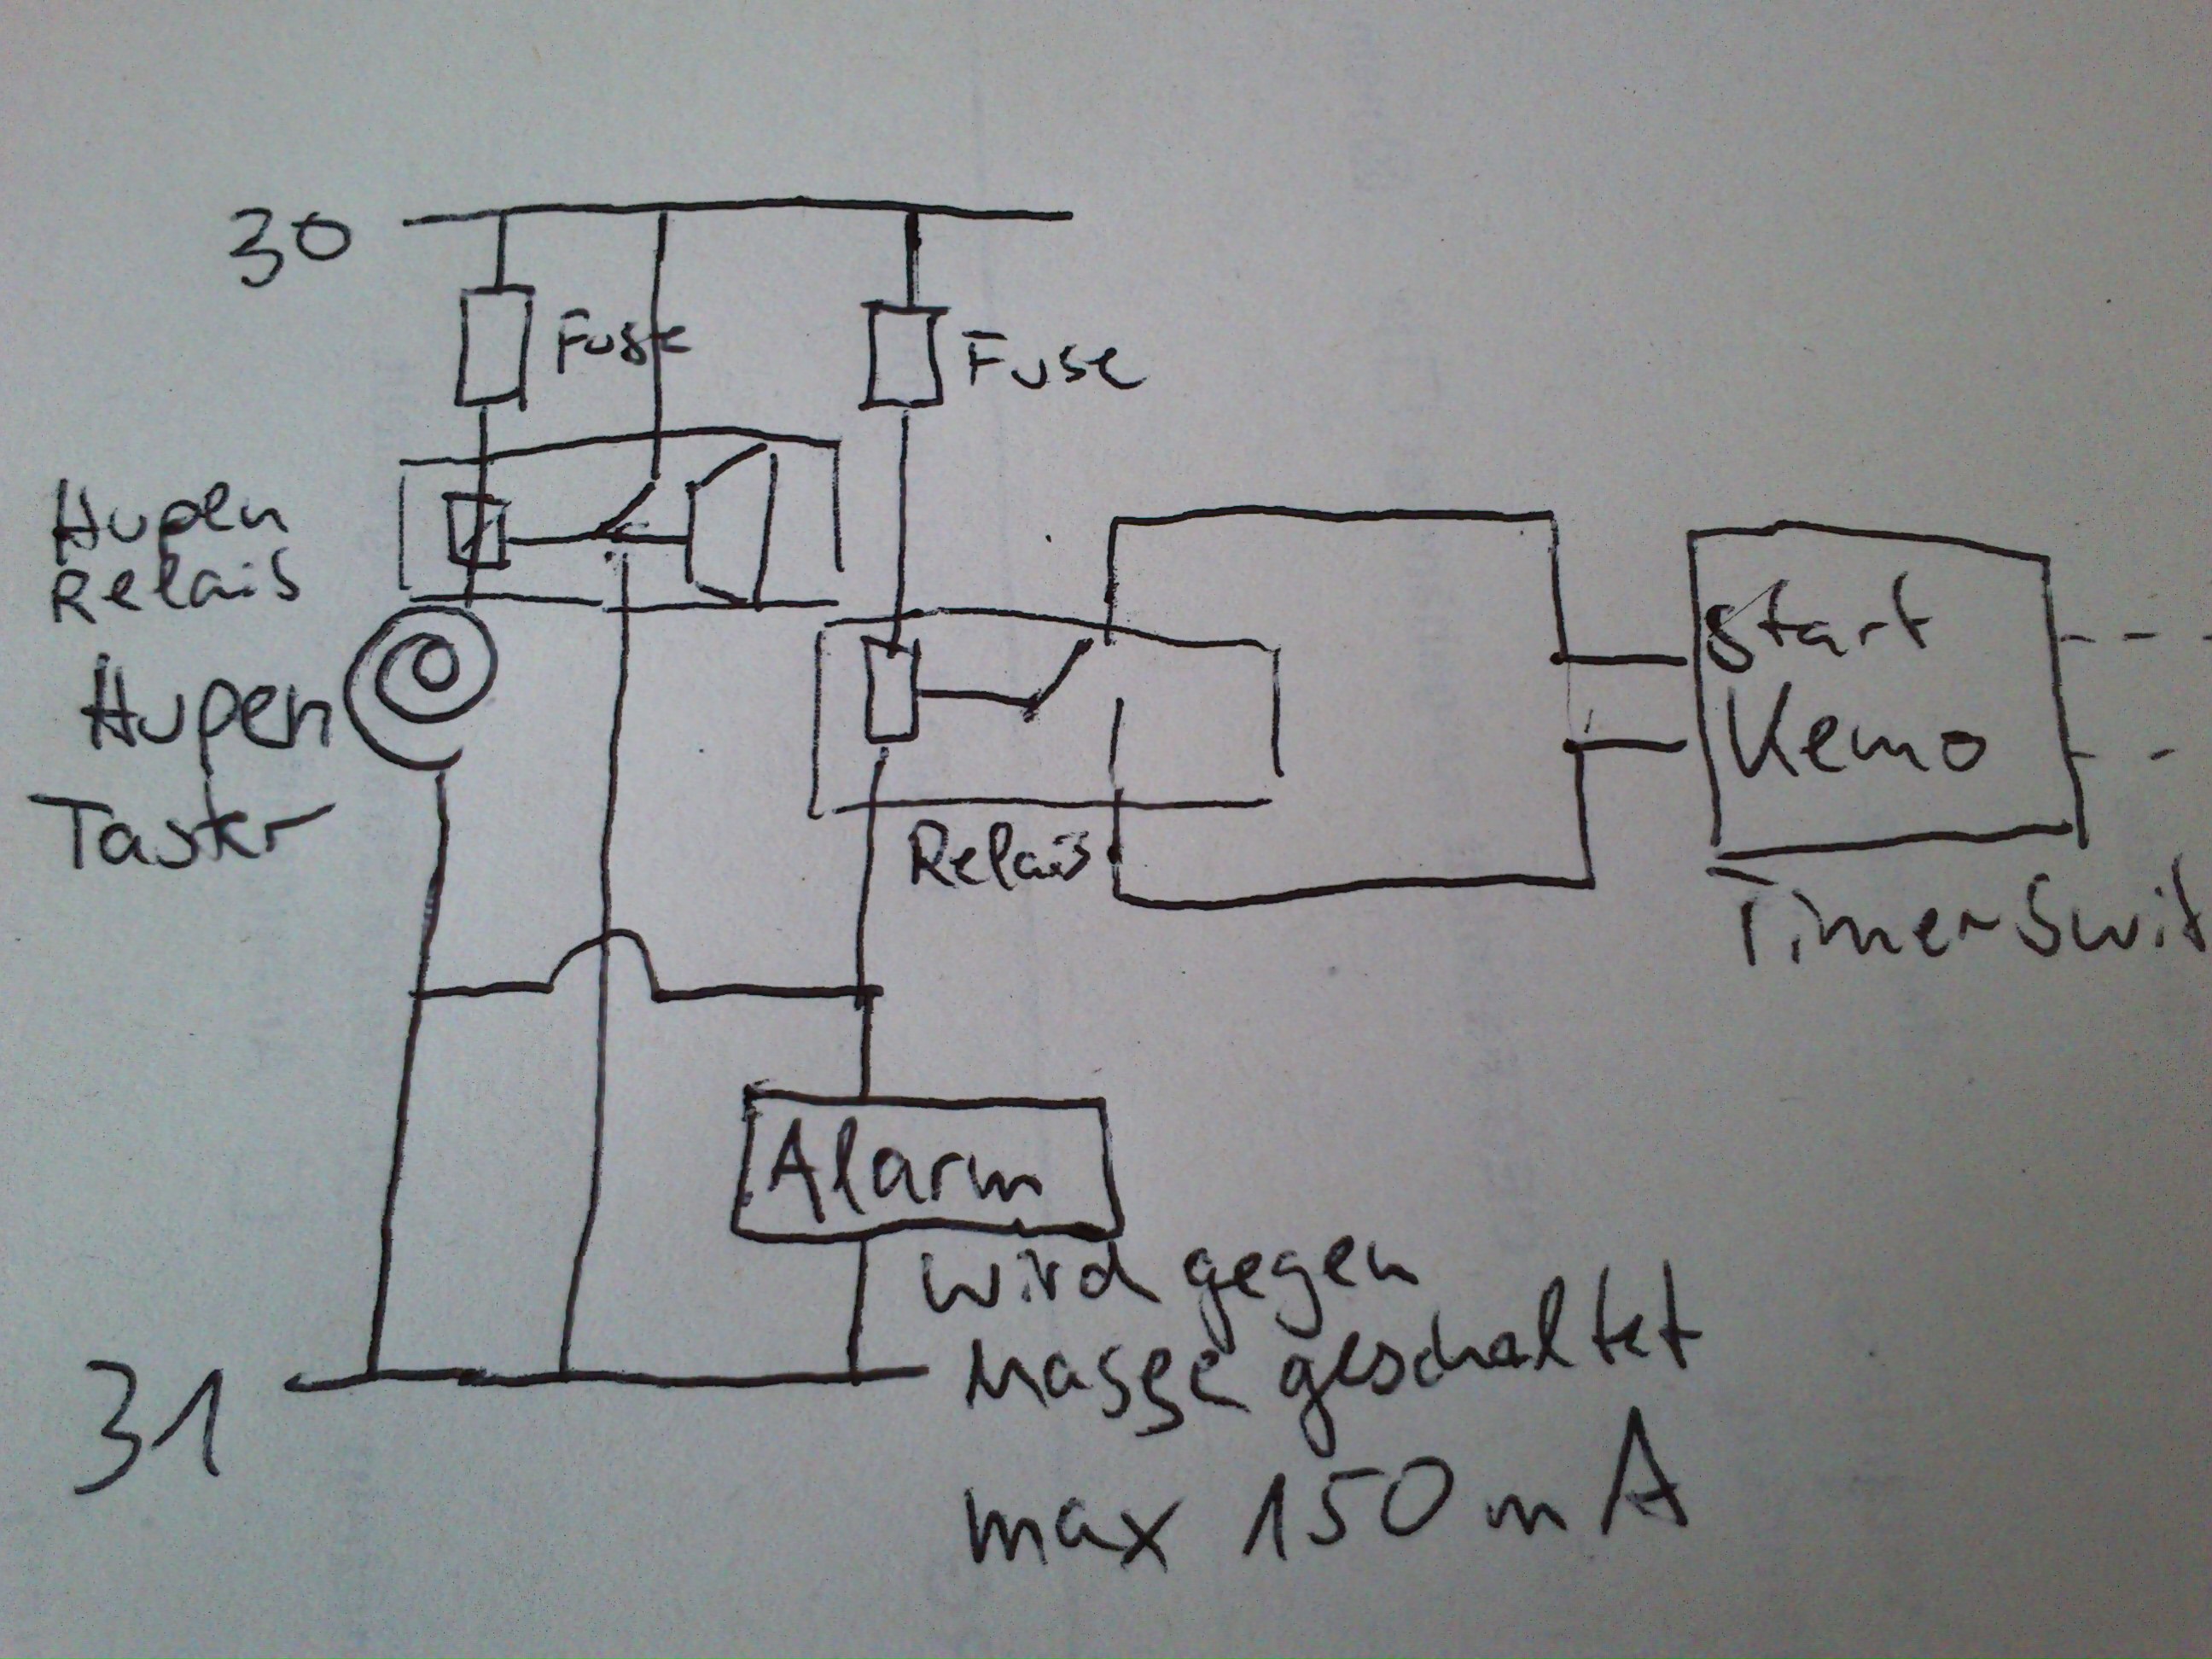 30
Fuse
Fuse
Hupen
Relais
Hupen
Taster
Relais
Start
Kemo
Timer Swit
Alarm
wird gegen
Masse geschaltet
max 150 mA
31